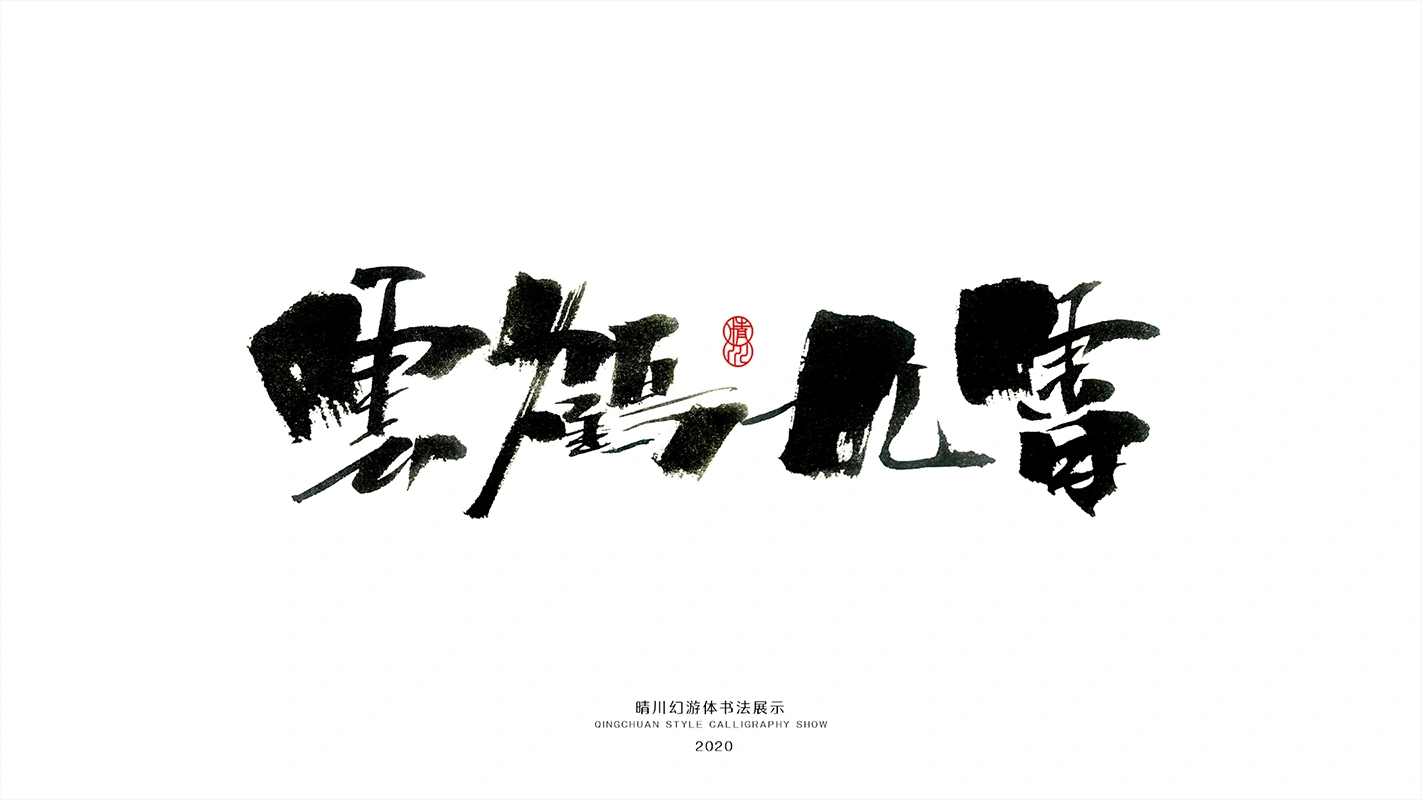 雲鶴九霄
晴川
晴川幻游体书法展示
QINGCHUAN STYLE CALLIGRAPHY SHOW
2020